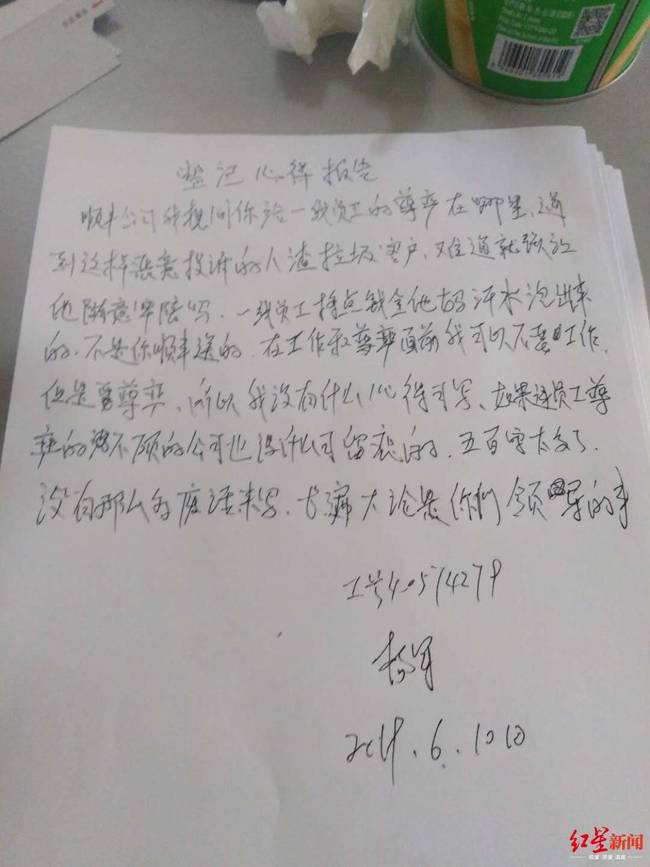 登记心得报告
顺丰公司我想问你给一线员工的尊严在哪里,遇
到这样恶意投诉的人渣垃圾客户,难道就强于
他随意罪陪吗,一线员工挣点钱全他妈汗水泡出来
的,不是你顺丰送的,在工作和尊严面前我可以不要工作,
但是要尊严,所以我没有什么心得可写,如果连员工尊
严的都不顾的公司也没什么可留恋的,五百字太多了,
没有那么多废话来写,长篇大论是你们领导的事
工号40574279
杨军
6.10
红星新闻